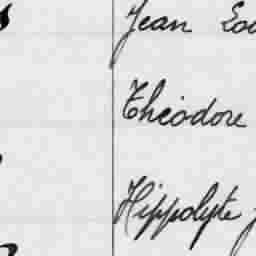 Jean Lou
Théodore
Hippolyte